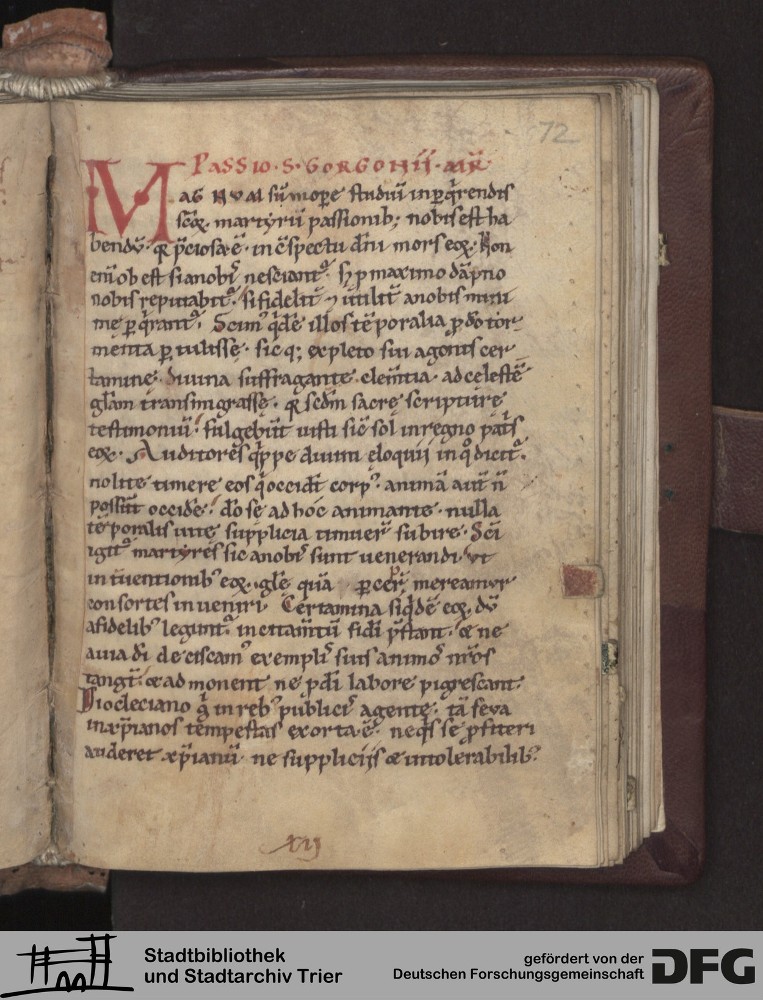 72
PASSIO · S · GORGONII · MR̄
MAGNUM sūmope studiū in pq̄rendis
scōꝝ martyrū passionib; nobis est ha
bendū · q̄ p̄ciosa ē in c̄spectu dn̄i mors eoꝝ · Non
eni ob est si a nobis nesciant᷒ · s; p maximo dāpno
nobis reputabit᷒ · si fidelit̄ ⁊ utilit̄ a nobis mini
me pq̄rant᷒ · Scim᷒ q̄dē illos tēporalia p dō tor
menta ptulisse · sicq; expleto sui agonis cer
tamine · divina suffragante clem̄tia · ad celestē
gl̄am transmigrasse · q̄ scdm̄ sacre scripture
testimoniū · fulgebūt iusti sic̄ sol in regno pat̄s
eoꝝ · Auditores q̄ppe divini eloquii in q̄ dicit᷒ ·
nolite timere eos q̄ occidūt corp᷒ · animā aut̄ n̄
possūt occide · dō se ad hoc animante · nulla
tēporalis vite supplicia timuer̄ subire · Sc̄i
igit᷒ martyres sic a nobis sunt venerandi · ut
eoꝝ · gl̄e mereamur
consortes inveniri · Certamina siq̄dē eoꝝ dū
a fidelib᷒ legunt᷒ · incitam̄tū fidi p̄stant · ⁊ ne
avia di
tangt̄ · ⁊ admonent ne p̄di labore pigrescant ·
Diocleciano g̊ in reb᷒ publicis agente · tā seva
in xp̄ianos tempestas exorta ē · ne q̄s se p̄fiteri
auderet xp̄ianū · ne suppliciis ⁊ intolerabilib᷒
XII
Stadtbibliothek
und Stadtarchiv Trier
gefördert von der
Deutschen Forschungsgemeinschaft
DFG